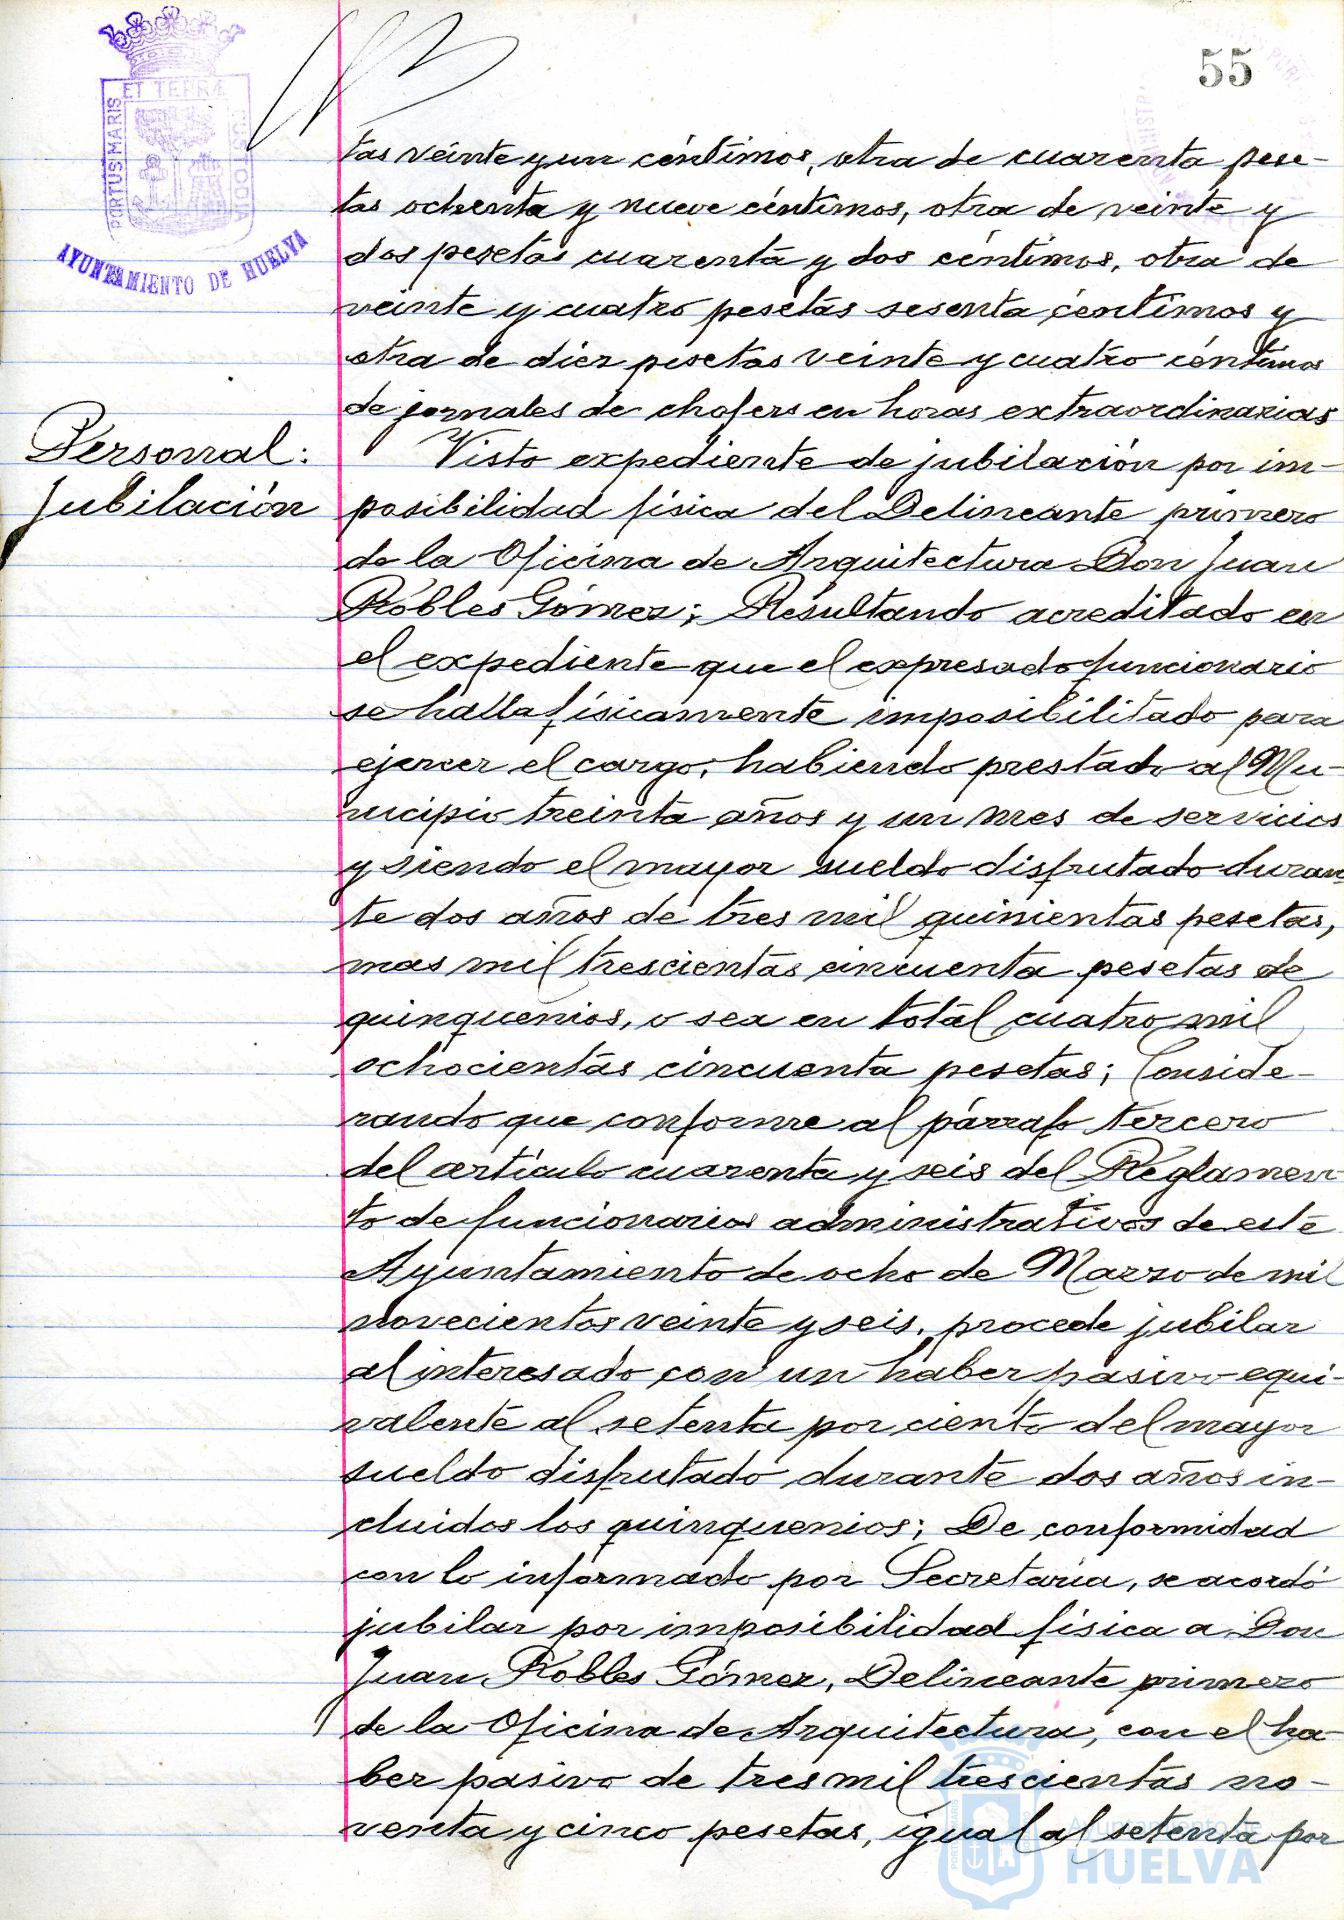 55
ET TERRÆ
PORTUS MARIS
CUSTODIA
AYUNTAMIENTO DE HUELVA
tas veinte y un céntimos, otra de cuarenta pese-
tas ochenta y nueve céntimos, otra de veinte y
dos pesetas cuarenta y dos céntimos, otra de
veinte y cuatro pesetas sesenta céntimos y
otra de diez pesetas veinte y cuatro céntimos
de jornales de chofers en horas extraordinarias
Personal:
Jubilación
Visto expediente de jubilación por im-
posibilidad física del Delineante primero
de la Oficina de Arquitectura Don Juan
Robles Gómez; Resultando acreditado en
el expediente que el expresado funcionario
se halla físicamente imposibilitado para
ejercer el cargo, habiendo prestado al Mu-
nicipio treinta años y un mes de servicios
y siendo el mayor sueldo disfrutado duran
te dos años de tres mil quinientas pesetas,
mas mil trescientas cincuenta pesetas de
quinquenios, o sea en total cuatro mil
ochocientas cincuenta pesetas; Conside-
rando que conforme al párrafo tercero
del artículo cuarenta y seis del Reglamen-
to de funcionarios administrativos de este
Ayuntamiento de ocho de Marzo de mil
novecientos veinte y seis, procede jubilar
al interesado con un haber pasivo equi-
valente al setenta por ciento del mayor
sueldo disfrutado durante dos años in-
cluidos los quinquenios; De conformidad
con lo informado por Secretaría, se acordó
jubilar por imposibilidad física a Don
Juan Robles Gómez, Delineante primero
de la Oficina de Arquitectura, con el ha-
ber pasivo de tres mil trescientas no-
venta y cinco pesetas, igual al setenta por
Ayuntamiento de
HUELVA